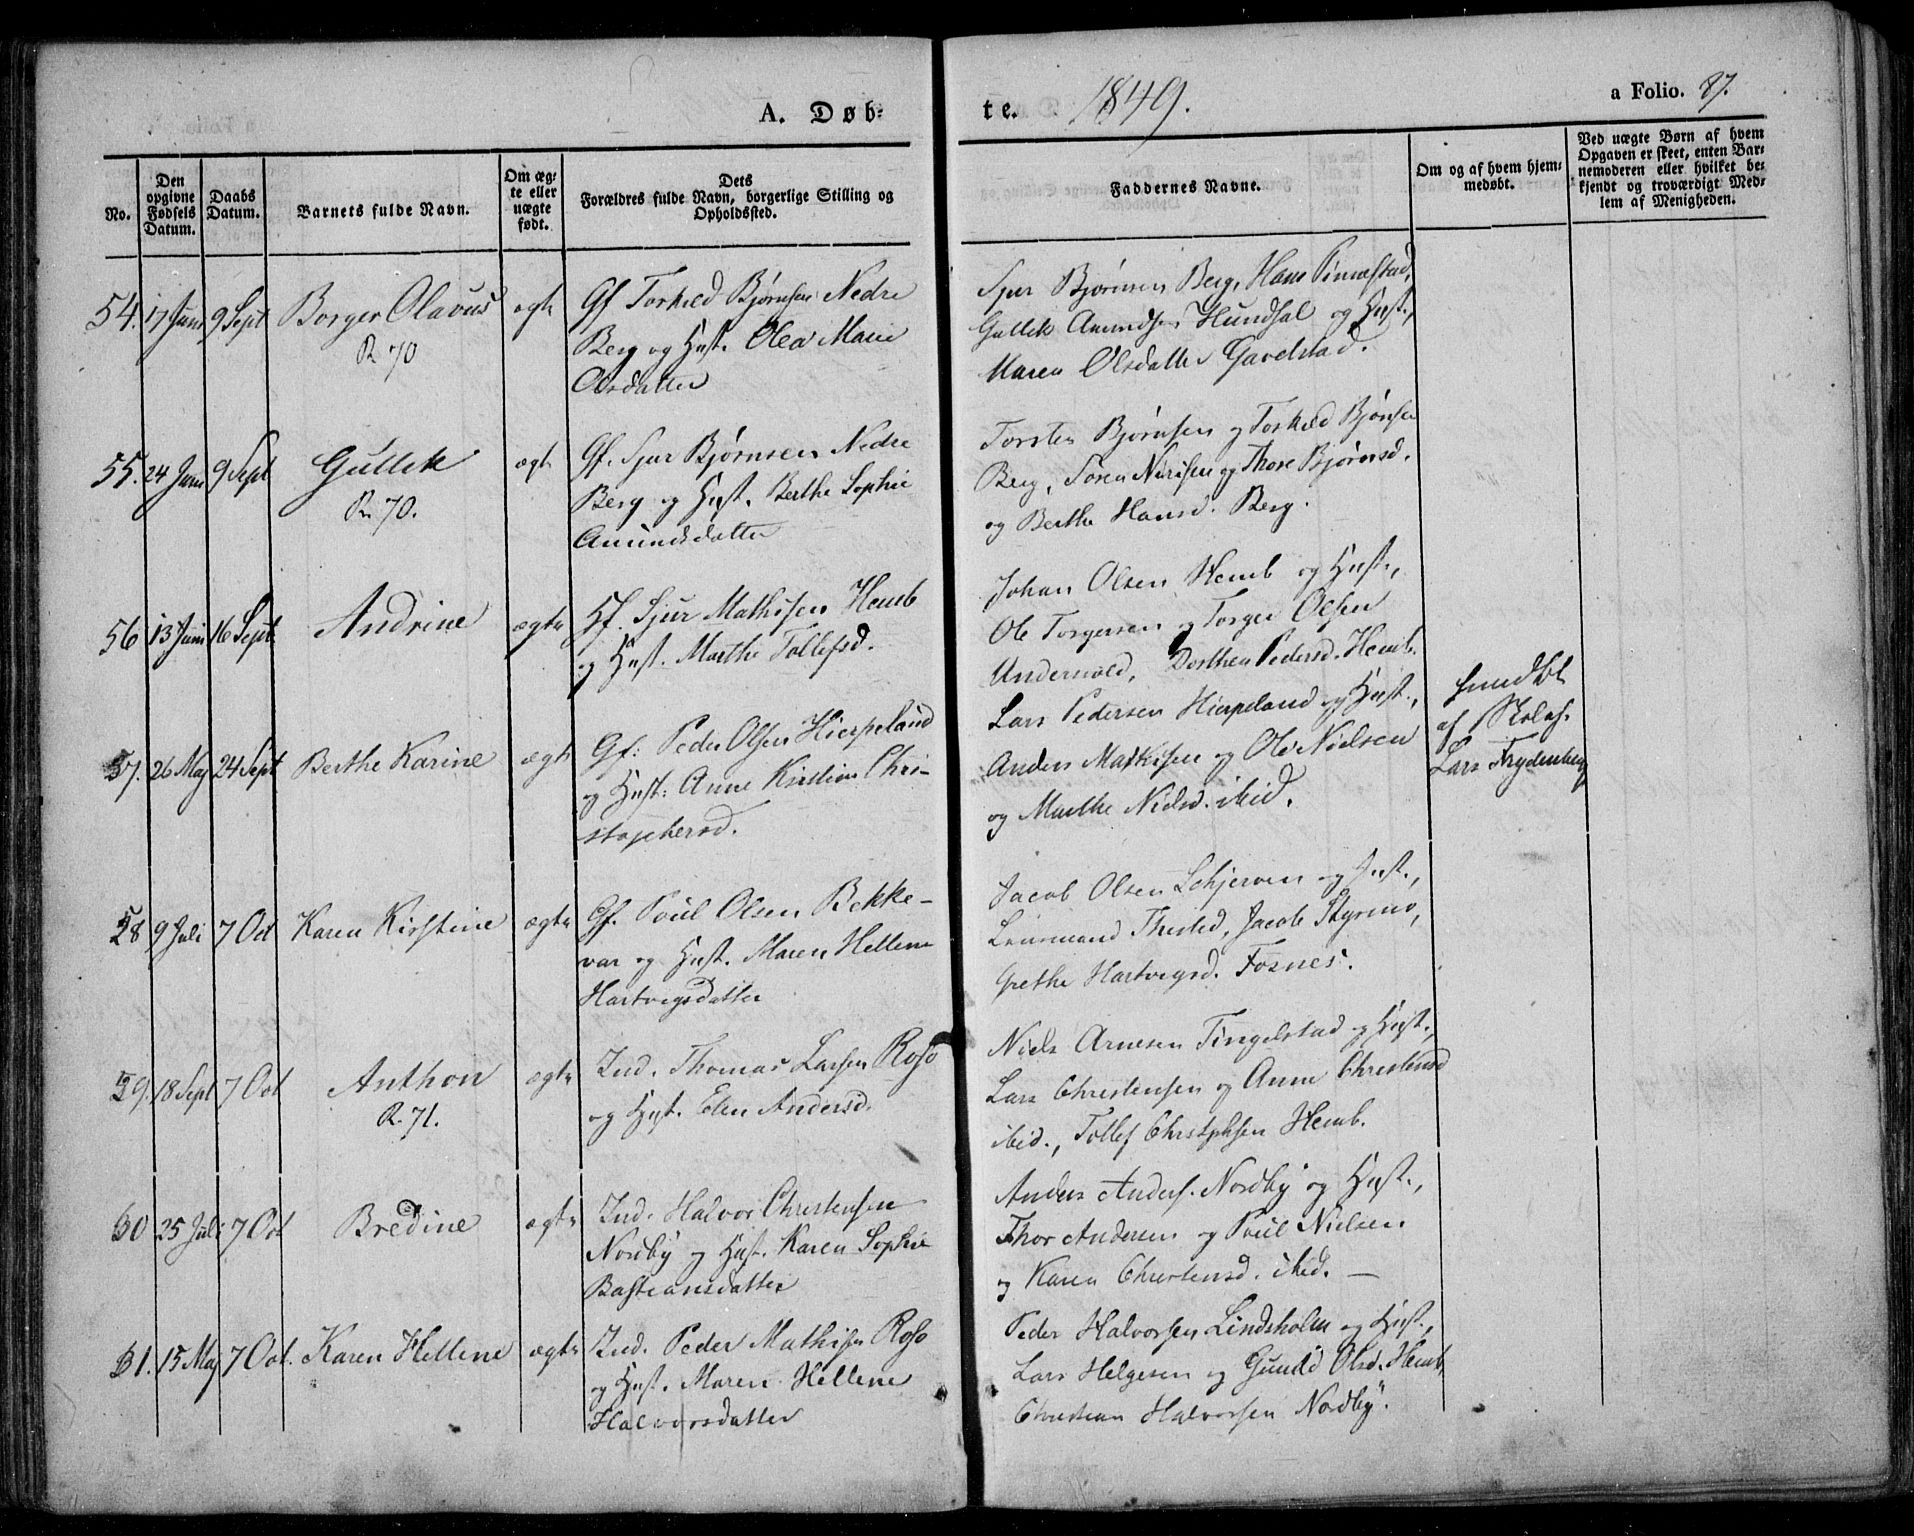 A. Døb-
te.
1849.
a Folio. 87.
No.
Den
opgivne
Fødsels
Datum.
Daabs
Datum.
Barnets fulde Navn.
Om æg-
te eller
uægte
født.
Dets
Forældres fulde Navn, borgerlige Stilling og
Opholdssted.
Faddernes Navne.
Om og af hvem hjem-
medøbt.
Ved uægte Børn af hvem
Opgaven er skeet, enten Bar-
nemoderen eller hvilket be-
kjendt og troværdigt Med-
lem af Menigheden.
54. 17 Juni 9 Sept Borger Olavus ægte
R 70
Gf Torkild Bjørnsen Nedre
Berg og Hust. Olea Marie
Olsdatter
Sjur Bjørnsen Berg, Hans
Gullik Amundsen Hundsal og Hust.,
Maren Olsdatter Gavelstad.
55. 24 Juni 9 Sept Gullik ægte
R. 70.
Gf. Sjur Bjørnsen Nedre
Berg og Hust. Berthe Sophie
Amundsdatter
Torsten Bjørnsen og Torkild Bjønsen
Berg, Søren og Thore Bjørnsd.
og Berthe Hansd. Berg.
56 13 Juni 16 Sept. Andrine ægte
Hf. Sjur Mathisen Hemb
og Hust. Marthe Tollefsd.
Johan Olsen Hemb og Hust.,
Ole Torgersen og Torger Olsen
Undersvold, Dorthea Pedersd. Hemb.
57. 26 Maj 24 Sept Berthe Karine ægte
Gf: Peder Olsen Hierpeland
og Hust: Anne Kirstine Chri-
stophersd.
Lars Pedersen Hierpeland og Hust.,
Anders Mathisen og Ole Nielsen
og Marthe Nielsd. ibid.
af Skolef.
Lars Frydenberg
58 9 Juli 7 Oct Karen Kirstine ægte
Gf. Poul Olsen Bekke-
var og Hust. Maren Hellene
Hartvigsdatter
Jacob Olsen Schjerven og Hust.,
Lensmand Thisted, Jacob Styrmo,
Grethe Hartvigsd. Fosnes.
59. 18 Sept 7 Oct Anthon ægte
R. 71.
Ind. Thomas Larsen Roso
og Hust. Elen Andersd.
Niels Arnesen Tingelstad og Hust.,
Lars Christensen og Anne Christensd
ibid., Tollef Christphsen Hemb.
60 25 Juli 7 Oct Bredine ægte
Ind. Halvor Christensen
Nordby og Hust. Karen Sophie
Bastiansdatter
Anders Anders. Nordby og Hust.,
Thor Andersen og Poul Nielsen
og Karen Christensd. ibid. —
61. 15 Maj 7 Oct. Karen Hellene ægte
Ind. Peder Mathisen Roso
og Hust. Maren Hellene
Halvorsdatter
Peder Halvorsen Lindsholm og Hust.,
Lars Helgesen og Gunild Olsd. Hemb,
Christian Halvorsen Nordby.